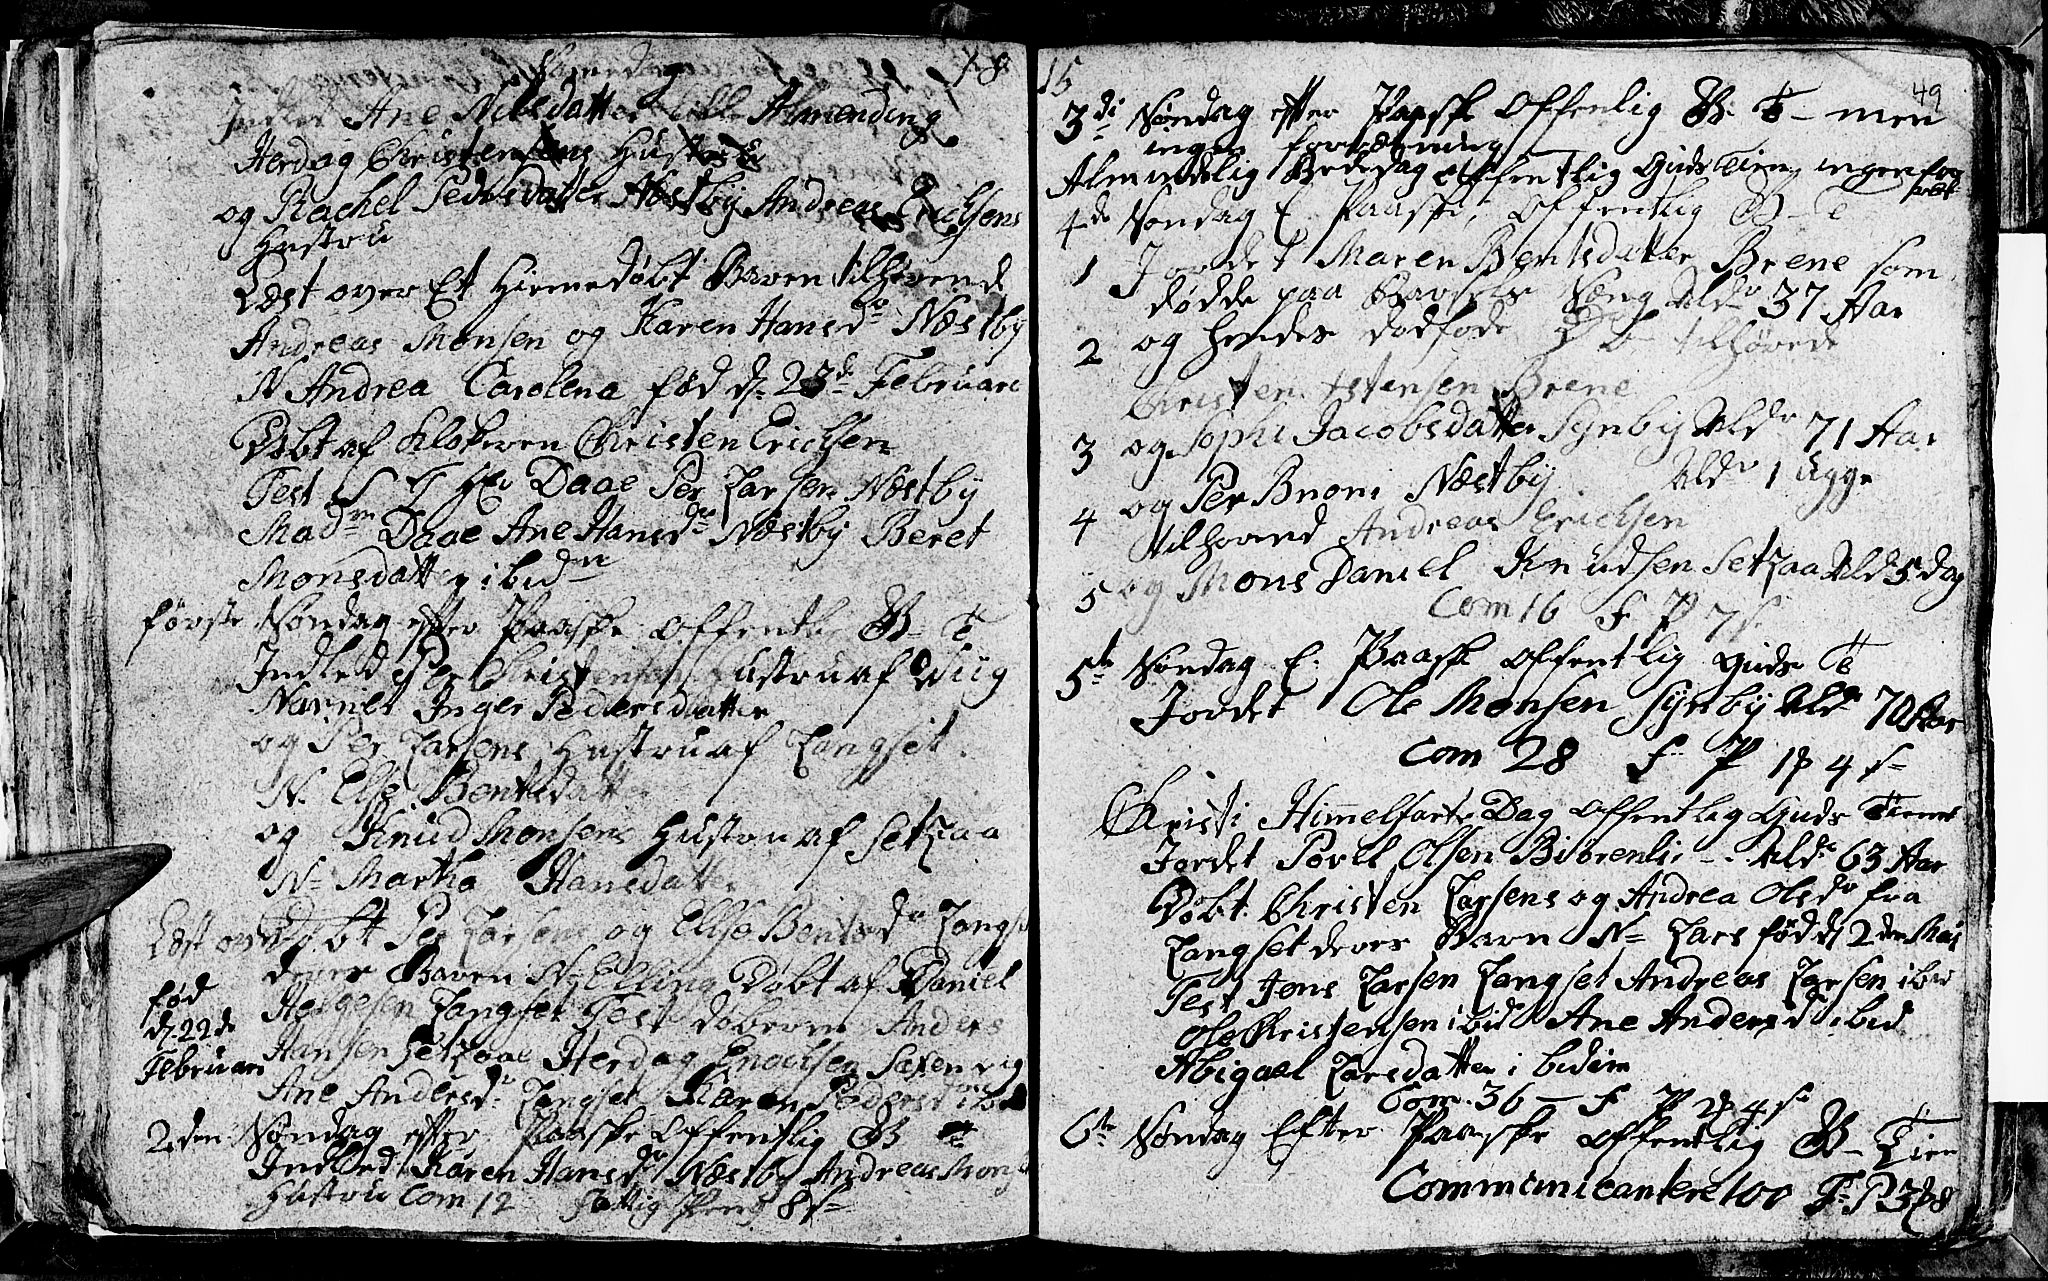 48
Indled Ane Nilsdatter lille Almending
Herdag Christensens Hustru
og Rachel Pedersdatter Næstby Andreas Erichsens
Hustru
Læst over Et Hiemmedøbt Baren tilhørende
Andreas Monsen og Karen Hansdr Næstby
N Andrea Carolena fød d. 23de Februari
Døbt af Klokeren Christen Erichsen
Test S T Hr Daae Per Larsen Næstby
Madm Daae Ane Hansdr Næstby Beret
Monsdatter ibidm
første Søndag efter Paaske offentl. G T
Indled Per Christensens Hustru af
Navnet Inger Pedersdatter
og Per Larsens Hustru af Langset
N. Else Bentsdatter
og Knud Monsens Hustru af Setraa
N Martha Hansdatter
Læst over Døbt Per Larsens og Ellse Bentsdr Langset
deres Baren N Elling Døbt af Daniel
fød
Helgesen Langset Test døberen Anders
d. 22de
Hansen Setraae Herdag Enochsen Saxenvig
Februari
Ane Andersdr Langset Karen Pedersd ibid
2den Søndag efter Paaske offentlig G T
Indled Karen Hansdr Næstby Andreas Mons
Hustru Com 12 Fattig Peng 8 s
15
49
3di Søndag efter Paaske Offenlig G. T - men
ingen forretning
Almindelig Bededag offentlig Gudstien, ingen for
ret
4de Søndag E. Paaske, Offentlig G - T
1 Jordet Maren Bentsdatter Brene som
døde paa Barsels Seng Aldr 37 Aar
2 og hendes dødføde tilhørede
Christen Estensen Brene
3 og Sophi Jacobsdatter Synby Aldr 71 Aar
4 og Per Bnoni Næstby Aldr 1 Uge
tilhørend Andreas Erichsen
5 og Mons Daniel Knudsen Setraa Ald 5 dag
Com 16 F P 7 s
5te Søndag E. Paaske offentlig Guds T
Jordet Ole Monsen Synby Aldr 70 Aar
Com 28 F P 1 4 s
Christi Himmelfarts Dag offentlig Guds Tienest
Jordet Povel Olsen Biørenli - Aldr 63 Aar
Døbt Christen Larsens og Andrea Olsdr fra
Langset deres Barn N Lars fød d 2den Maj
Test Jens Larsen Langset Andreas Larsen ibid
Ole Christensen ibid Ane Andersd ibid
Abigael Larsdatter ibidem
Com. 36 - F P 4 s
6te Søndag Efter Paaske offentlig G - Tien
Communicantere 100 F P 3 8